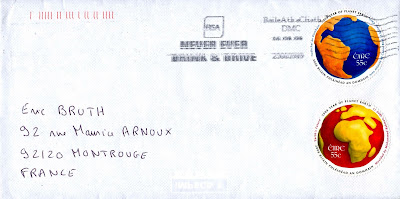 RSA
NEVER EVER
DRINK & DRIVE
Baile Átha Cliath
DMC
ÉIRE
55c
ÉIRE
55c
Eric BRUTH
92 rue Maurice ARNOUX
92120 MONTROUGE
FRANCE